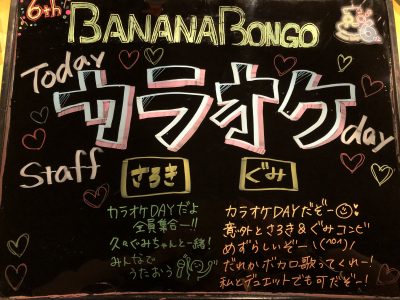 6th
BANANABONGO
6
Today
カラオケ
day
Staff
さろき
ぐみ
カラオケDAYだよ
全員集合ー!!
久々ぐみちゃんと一緒!
みんなで
うたおう
カラオケDAYだぞー
意外とさろき&ぐみコンビ
めずらしいぞー\(^o^)/
だれかボカロ歌ってくれー!
私とデュエットでも可だぞー!